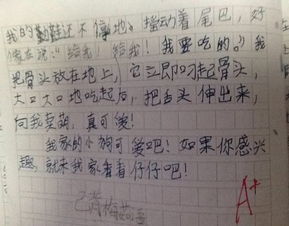 我的鞋还不停地、摇动着尾巴，好
像在说："给我！给我！我要吃的。"我
把骨头放在地上，它立即叼起骨头，
大口大口地吃起后，把舌头伸出来，
向我卖萌，真可爱！
我家的小狗可爱吧！如果你感兴
趣，就来我家看看仔仔吧！
A+